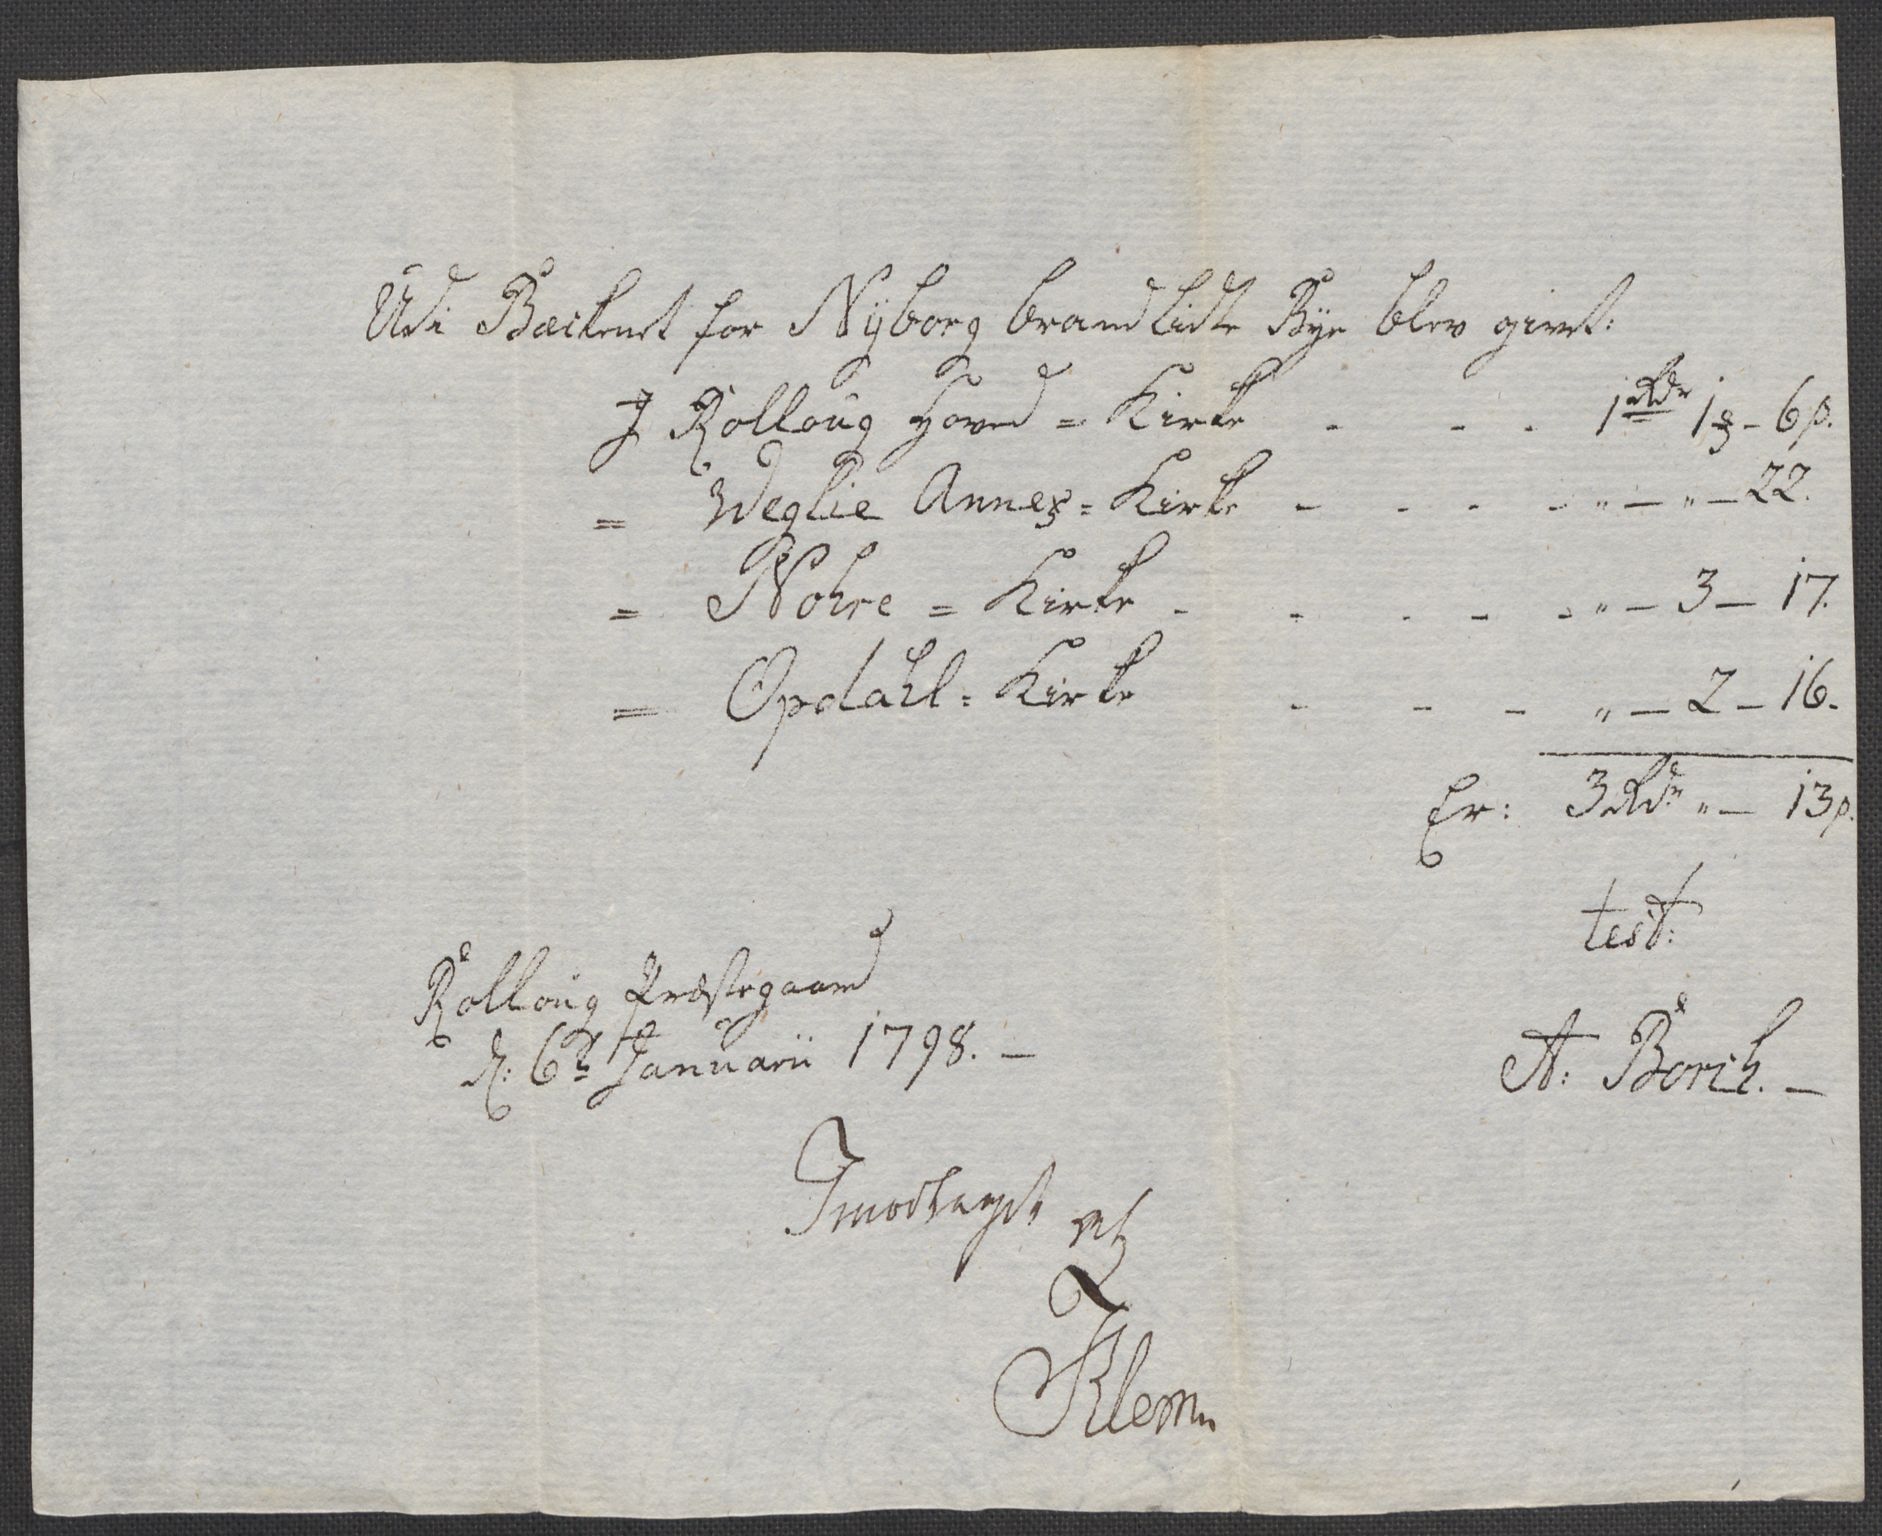 Udi Bæckenet for Nÿborg brandlidte Bÿe blev givet:
J Rolloug Hoved = Kirke - - - 1 Rdr 1 ℥ - 6 β.
= Weglie Annex = Kirke - - - - " - " - 22.
= Nohre = Kirke - - - - - " - 3 - 17.
= Opdahl = Kirke - - - " - 2 - 16.
Er: 3 Rdr " - 13 β.
test:
Rolloug Præstegaard
d: 6te Januarii 1798. -
A: Borch. -
Imodtaget
Klem